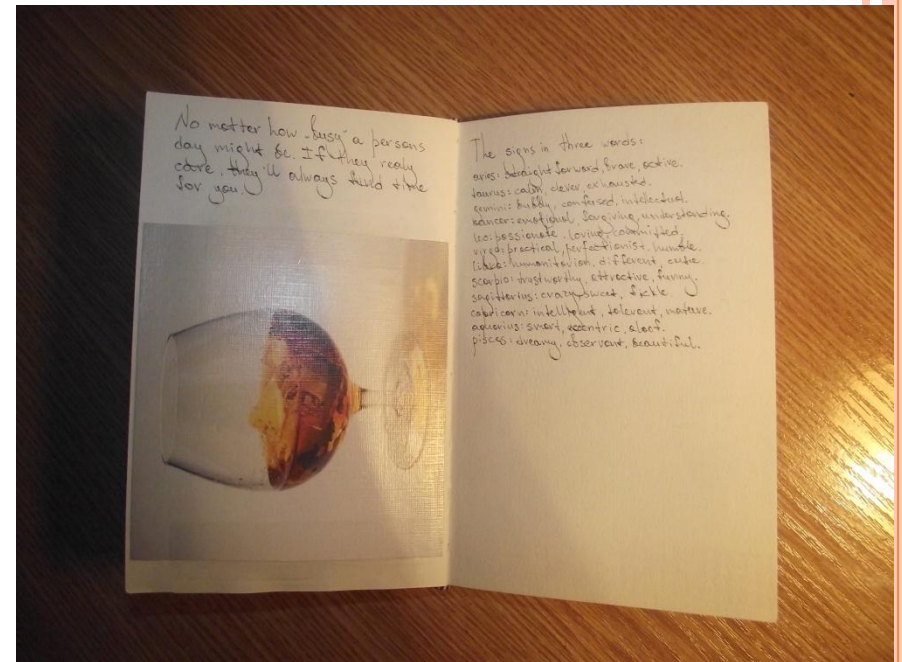 No matter how „busy" a persons
day might be. If they realy
care, they'll always find time
for you.
The signs in three words:
aries: straight forword, brave, active.
taurus: calm, clever, exhausted.
gemini: bubbly, confused, intellectual.
cancer: emotional, forgiving, understanding.
leo: passionate, loving, committed.
virgo: practical, perfectionist, humble.
libra: humanitarian, different, cute.
scorpio: trustworthy, attractive, funny.
sagittarius: crazy, sweet, fickle.
capricorn: intelligent, tolerant, mature.
aquarius: smart, eccentric, aloof.
pisces: dreamy, observant, beautiful.